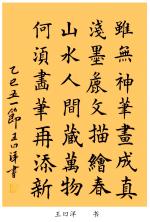 雖無神筆畫成真
淺墨處文描繪春
山水人間藏萬物
何須畫筆再添新
乙巳五一節王日洋書
王日洋 书